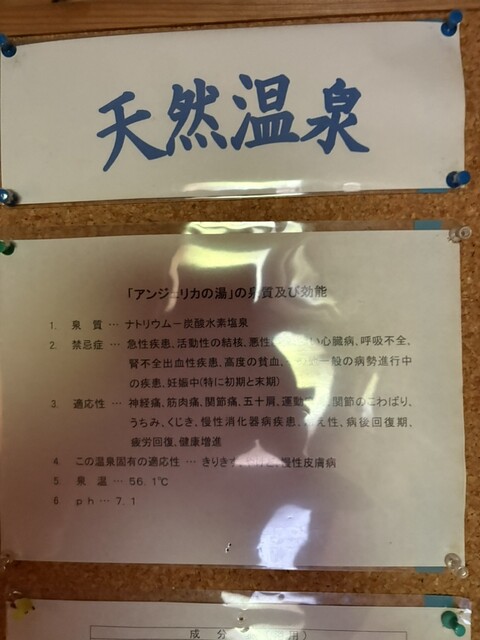 天然温泉
「アンジェリカの湯」の泉質及び効能
1. 泉 質 … ナトリウムー炭酸水素塩泉
2. 禁忌症 … 急性疾患、活動性の結核、悪性 い心臓病、呼吸不全、
腎不全出血性疾患、高度の貧血、 一般の病勢進行中
の疾患、妊娠中(特に初期と末期)
3. 適応性 … 神経痛、筋肉痛、関節痛、五十肩、運動 関節のこわばり、
うちみ、くじき、慢性消化器病疾患、 え性、病後回復期、
疲労回復、健康増進
4. この温泉固有の適応性 … きりきず、やけど、慢性皮膚病
5. 泉 温 … 56.1℃
6. ph … 7.1
成 分 用)